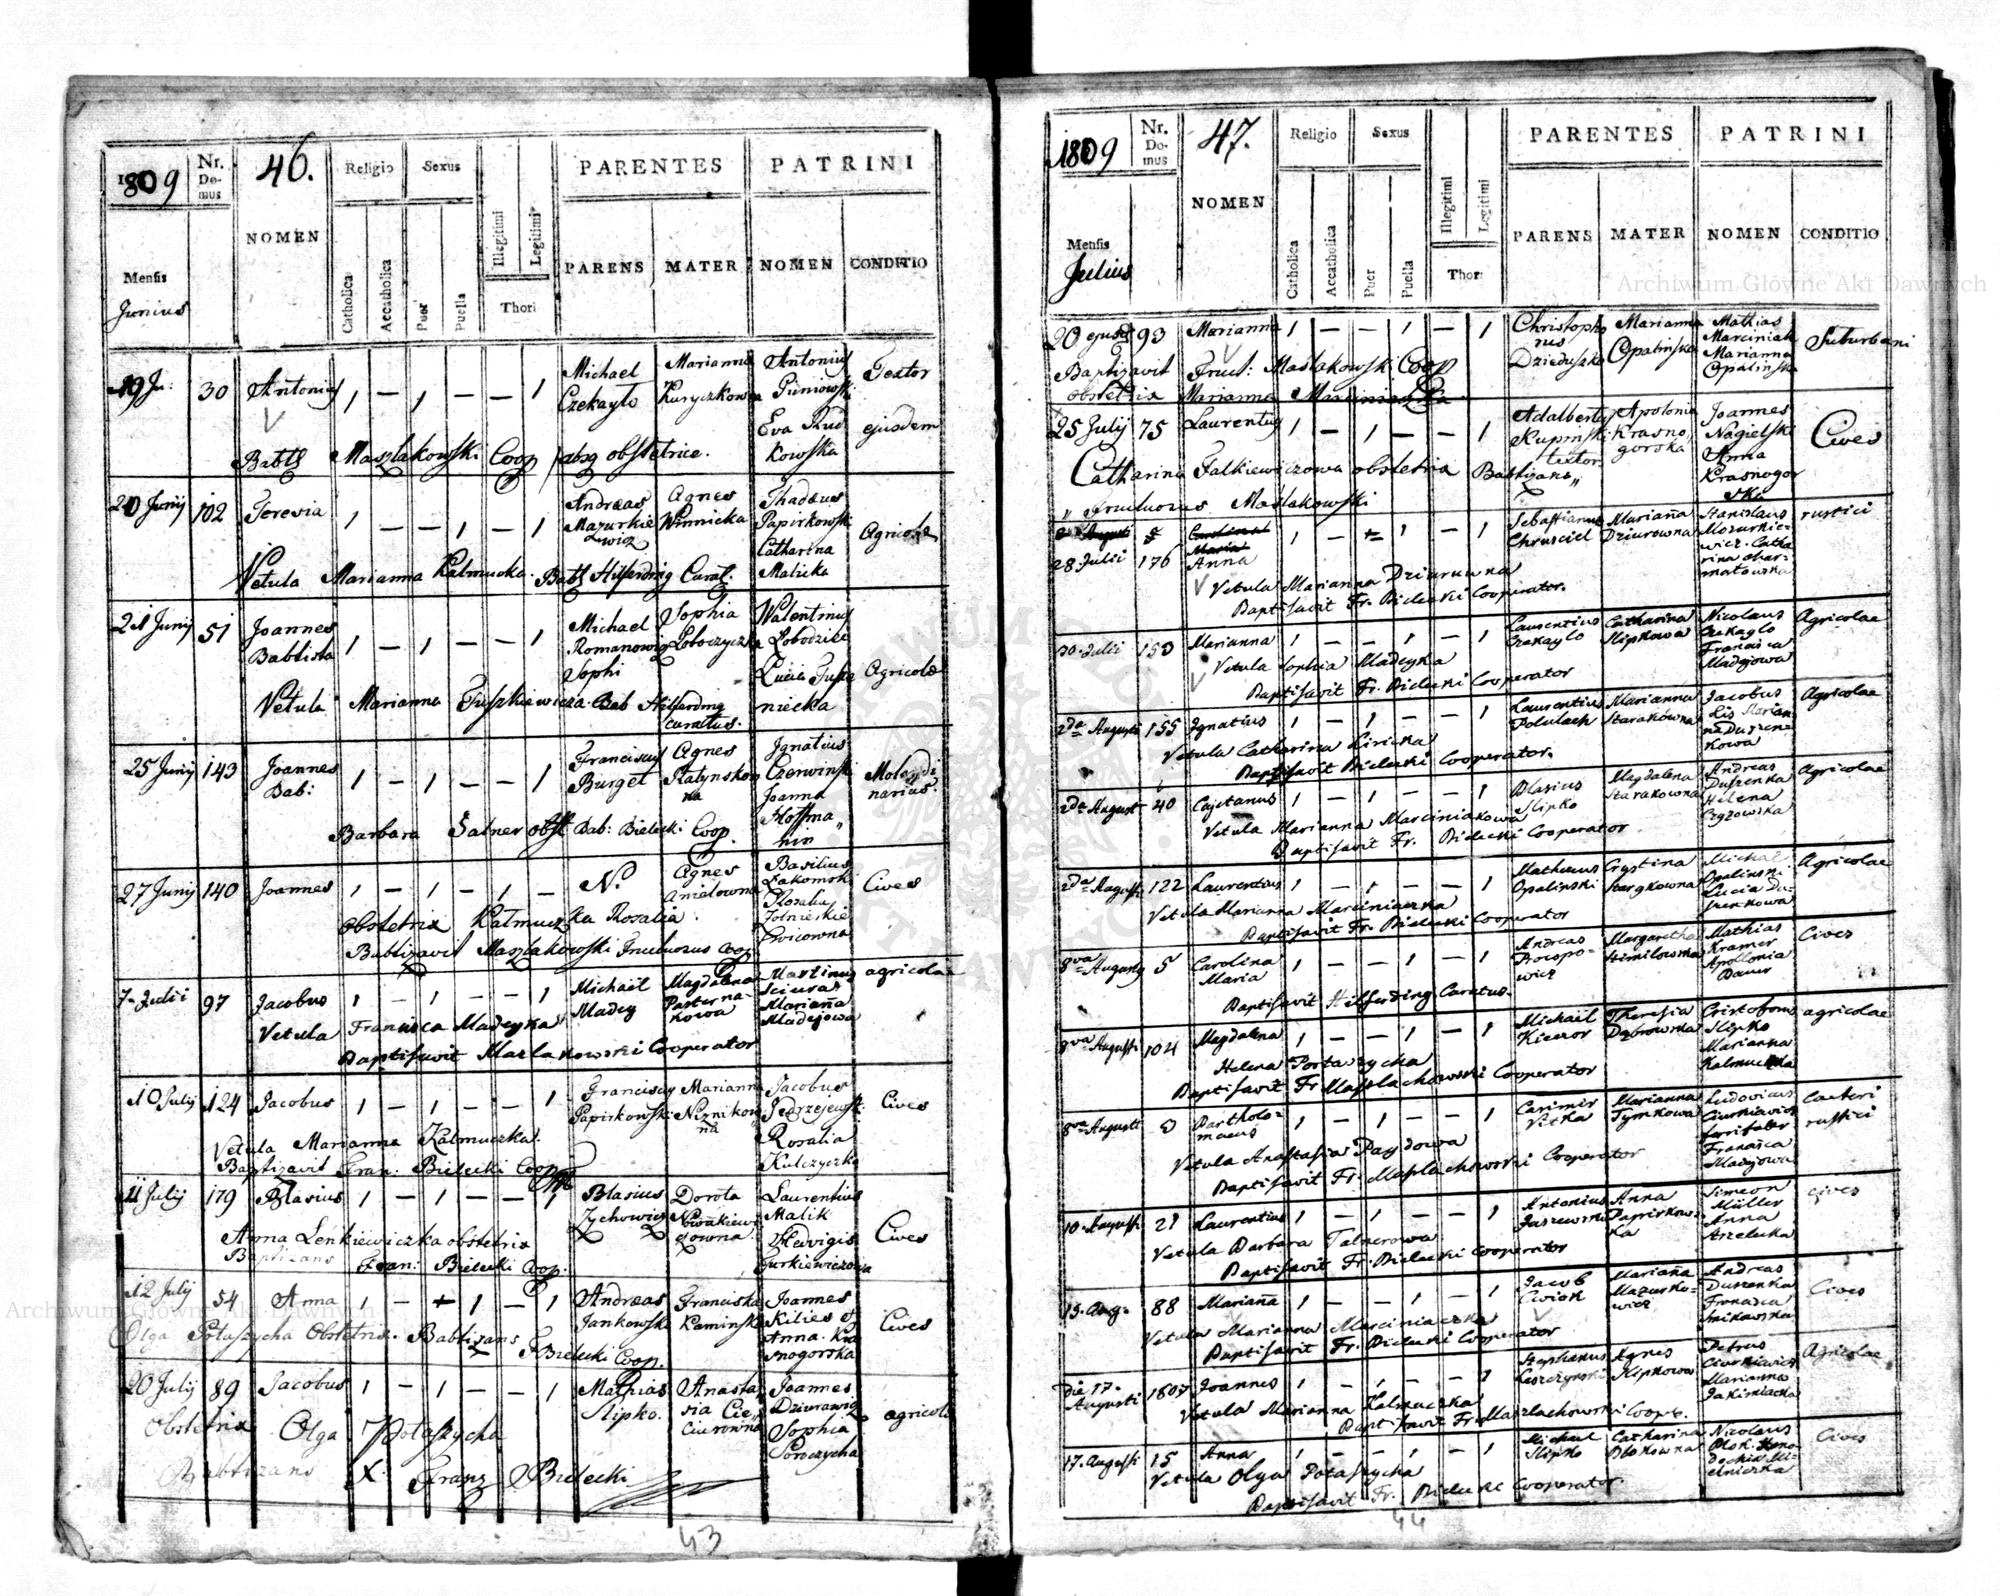 1809
Nr. Domus
46.
Religio
Sexus
PARENTES
PATRINI
NOMEN
Illegitimi
Legitimi
PARENS
MATER
NOMEN
CONDITIO
Mensis
Junius
Catholica
Accatholica
Puer
Puella
Thori
19 Ju: 30 Antonius 1 — 1 — — 1 Michael Czekayło Marianna Kuryczkowa Antonius Piniowski Textor
Eva Rud kowska ejusdem
Babtz Maszlakowski Coop absq obstetrice.
20 Junij 102 Teresia 1 — — 1 — 1 Andreas Mazurkiewicz Agnes Winnicka Thadeus Papirkowski Catharina Malicka Agricolæ
Vetula Marianna Kalmucka. Babtz Hilferding Curat.
21 Junij 51 Joannes Babtista 1 — 1 — — 1 Michael Romanowicz Sophia Łoboczyczka Walentinus Łobodzike
Sophi Lucia Juszkie niecka Agricolæ
Vetula Marianna Juszkiewicza Bab Hilferding curatus.
25 Junij 143 Joannes Bab: 1 — 1 — — 1 Franciscus Burget Agnes Ratynskowna Ignatius Czerwinski Joanna Hoffma„ nin Molendinarius.
Barbara Salner obst Bab: Bielecki Coop.
27 Junij 140 Joannes 1 — 1 — 1 — N. Agnes Anielowna Basilius Łakomski Rosalia Zolnieskie Cwicowna Cives
Obstetrix Kałmucz ka Rosalia
Babtizavit Maszlakowski Fructuosus Coop
7. Julii 97 Jacobus 1 — 1 — — 1 Michaël Madey Magdalena Pasternakowa Martinus Sciura Mariaña Madejowa agricolæ
Vetula Francisca Madeyka
Baptisavit Mazlakowski Cooperator
10 July 124 Jacobus 1 — 1 — — 1 Franciscus Papirkowski Marianna Niznikowna Jacobus Jedrzejewski Rosalia Kulczycka Cives
Vetula Marianna Kalmuczka.
Baptizavit Fran: Bielecki Coop
11 July 179 Blasius 1 — 1 — — 1 Blasius Zychowicz Dorota Nowakiewiczowna Laurentius Malik Hedvigis Jurkiewiczowa Cives
Anna Lenkiewiczka obstetrix
Baptizans Fran: Bielecki Coop:
12 July 54 Anna 1 — + 1 — 1 Andreas Jankowski Franciska Kaminski Joannes Kilies et Anna. Kra snogorska Cives
Olga Potaszycha Obstetrix. Babtizans F Bielecki Coop.
20 July 89 Jacobus 1 — 1 — — 1 Mathias Slipko. Anastasia Cie„ ciurowna Joannes Dziurawiec Sophia Poroczycha agricolæ
Obstetrix Olga Potaszycha
Babtizans X. Franz Bielecki
43
1809
Nr. Domus
47.
Religio
Sexus
PARENTES
PATRINI
NOMEN
Illegitimi
Legitimi
PARENS
MATER
NOMEN
CONDITIO
Mensis
Julius
Catholica
Accatholica
Puer
Puella
Thori
20 ejusd 93 Marianna 1 — — 1 — 1 Christophorus Dzieduszko Marianna Opalinska Mathias Marciniak Marianna Opalinska Suburbani
Baptizavit Fruct: Maslakowski Coop
obstetrix Marianna Marciniaczka.
25 July 75 Laurentus 1 — 1 — — 1 Adalbertus Kupinski textor. Apolonia Krasno„ gorska Joannes Nagielski Anna Krasnogor ska Cives
Catharina Falkiewiczowa obstetrix Babtizans„
„ Fructuosus Maslakowski
28 Julii 176 Anna 1 — 1 — 1 Sebastianus Chrusciel Mariaña Dziurowna Stanislaus Mozurkiewicz. Catharina charmatowska rustici
Vetula Marianna Dziurowna
Baptisavit Fr. Bielecki Cooperator.
30. Julii 153 Marianna 1 — — 1 — 1 Laurentius Czekaylo Catharina Slipkowa Nicolaus Czekaylo Francisca Madejowa Agricolae
Vetula Sophia Madeyka
Baptisavit Fr. Bielecki Cooperator
2da Augusti 155 Ignatius 1 — 1 — — 1 Laurentius Polulach Marianna Starakówna Jacobus Lis Marianna Duszenkowa Agricolae
Vetula Catharina Liricka
Baptisavit Bielecki Cooperator.
2da August 40 Cajetanus 1 — 1 — — 1 Blasius Slipko Magdalena Starakowna Andreas Duszenka Helena Czyzowska Agricolae
Vetula Marianna Marciniakowa
Baptisavit Fr. Bielecki Cooperator
2da Augusti 122 Laurentius 1 — 1 — — 1 Matheus Opalinski Crystina Stargkowna Michał Opalinski Lucia Duszenkowa Agricolae
Vetula Marianna Marciniaczka
Baptisavit Fr. Bielecki Cooperator
8va Augusty 5 Carolina Maria 1 — — 1 — 1 Andreas Procopowicz Margaretha Szmilowska Mathias Kramer Apollonia Bauer Cives
Baptisavit Hilferding Curatus.
8va Augusti 104 Magdalena 1 — — 1 — 1 Michaël Kiczor Theresia Dąbrowska Cristoforus Slipko Marianna Kalmucka agricolae
Helena Portaszycha
Baptisavit Fr Maszlachowski Cooperator
8va Augusti 3 Bartholomaeus 1 — 1 — — 1 Casimir Vitka Marianna Tymkowa Ludovicus Ciurkiewicz Francisca Madejowa caeteri rustici
Vetula Anastasia Paydowa
Baptisavit Fr. Maszlachowski Cooperator
10. Augusti 21 Laurentius 1 — 1 — — 1 Antonius Jaszewski Anna Papirkowska Simeon Müller Anna Arzelucka cives
Vetula Barbara Talnerowa
Baptisavit Fr. Bielecki Cooperator
15. Aug. 88 Mariaña 1 — — 1 — 1 Jacob Cwiok Mariaña Mazurkowicz Andreas Duszenka Francisca Smikowska Cives
Vetula Marianna Marciniaczka
Baptisavit Fr. Bielecki Cooperator
Die 17. Augusti 1807 Joannes 1 — 1 — — 1 Stephanus Leszczynski Agnes Slipkowa Petrus Ciurkiewicz Marianna Jakimiacka Agricolae
Vetula Marianna Kalmuczka
Baptisavit Fr. Maszlachowski Coop.
17. Augusti 15 Anna 1 — — 1 — 1 Michael Slipko Catharina Blokowna Nicolaus Blok. Cives
Vetula Olga Potaszycha
Baptisavit Fr. Bielecki Cooperator.
44
Archiwum Główne Akt Dawnych
Archiwum Główne Akt Dawnych